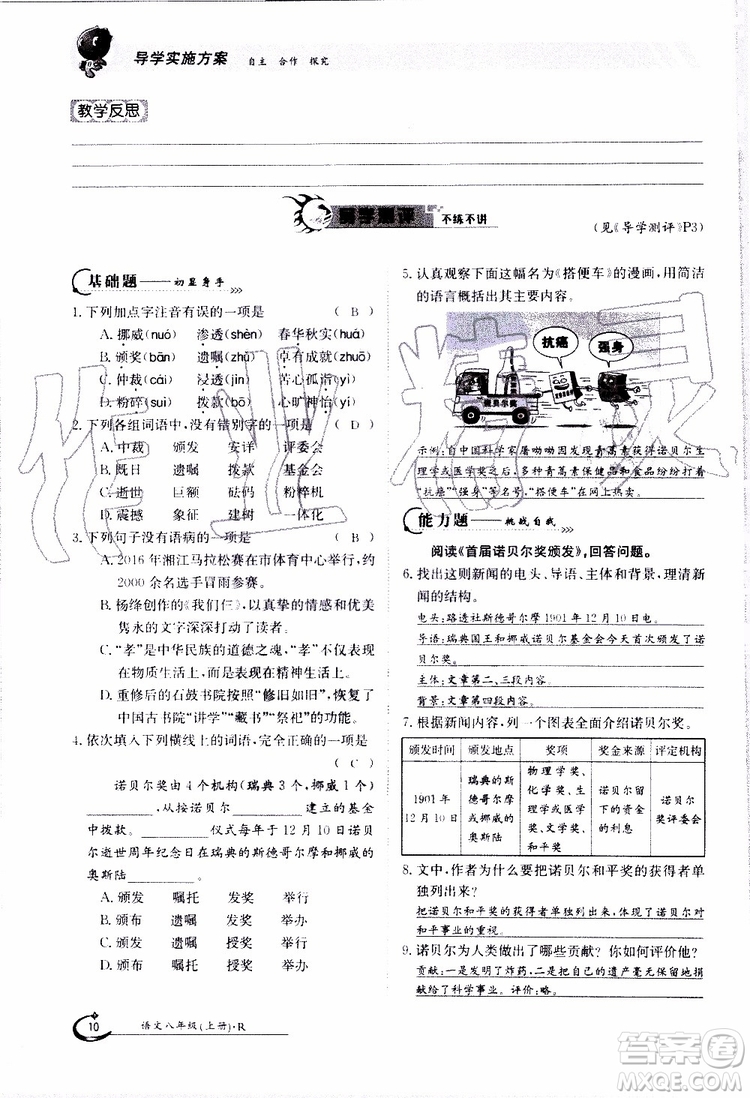 导学实施方案 自主 合作 探究
教学反思
导学测评 不练不讲
(见《导学测评》P3)
基础题——初显身手
1. 下列加点字注音有误的一项是 ( B )
A. 挪威(nuó) 渗透(shèn) 春华秋实(huá)
B. 颁奖(bān) 遗嘱(zhǔ) 卓有成就(zhuō)
C. 仲裁(cái) 浸透(jìn) 苦心孤诣(yì)
D. 粉碎(suì) 拨款(bō) 心旷神怡(yí)
2. 下列各组词语中,没有错别字的一项是 ( )
A. 中裁 颁发 安详 评委会
B. 既日 遗嘱 拨款 基金会
C. 逝世 巨额 砝码 粉粹机
D. 震撼 象征 建树 一体化
3. 下列句子没有语病的一项是 ( B )
A. 2016年湘江马拉松赛在市体育中心举行,约
2000余名选手冒雨参赛。
B. 杨绛创作的《我们仨》,以真挚的情感和优美
隽永的文字深深打动了读者。
C. “孝”是中华民族的道德之魂,“孝”不仅体现
在物质生活上,而且体现在精神生活上。
D. 重修后的石鼓书院按照“修旧如旧”,恢复了
中国古书院“讲学”“藏书”“祭祀”的功能。
4. 依次填入下列横线上的词语,完全正确的一项是
( C )
诺贝尔奖由4个机构(瑞典3个,挪威1个)
,从按诺贝尔 建立的基金
中拨款。 仪式每年于12月10日诺贝
尔逝世周年纪念日在瑞典的斯德哥尔摩和挪威的
奥斯陆 。
A. 颁发 嘱托 发奖 举行
B. 颁布 遗嘱 发奖 举办
C. 颁发 遗嘱 授奖 举行
D. 颁布 嘱托 授奖 举办
5. 认真观察下面这幅名为《搭便车》的漫画,用简洁
的语言概括出其主要内容。
抗癌
强身
诺贝尔奖
示例:自中国科学家屠呦呦因发现青蒿素获得诺贝尔生
理学或医学奖之后,多种青蒿素保健品和食品纷纷打着
“抗癌”“强身”等名号,“搭便车”在网上热卖。
能力题——挑战自我
阅读《首届诺贝尔奖颁发》,回答问题。
6. 找出这则新闻的电头、导语、主体和背景,理清新
闻的结构。
电头:路透社斯德哥尔摩1901年12月10日电。
导语:瑞典国王和挪威诺贝尔基金会今天首次颁发了诺
贝尔奖。
主体:文章第二、三段内容。
背景:文章第四段内容。
7. 根据新闻内容,列一个图表全面介绍诺贝尔奖。
颁发时间 颁发地点 奖项 奖金来源 评定机构
1901年
12月10日
瑞典的斯
德哥尔摩
或挪威的
奥斯陆
物理学奖、
化学奖、生
理学或医学
奖、文学奖、
和平奖
诺贝尔留
下的资金
的利息
诺贝尔
奖评委会
8. 文中,作者为什么要把诺贝尔和平奖的获得者单
独列出来?
把诺贝尔和平奖的获得者单独列出来,突出了诺贝尔对
和平事业的重视。
9. 诺贝尔为人类做出了哪些贡献?你如何评价他?
贡献:一是发明了炸药,二是把自己的遗产毫无保留地捐
献给了科学事业。评价:略。
10 语文八年级(上册)·R
作业精灵
答案圈
MXQE.COM